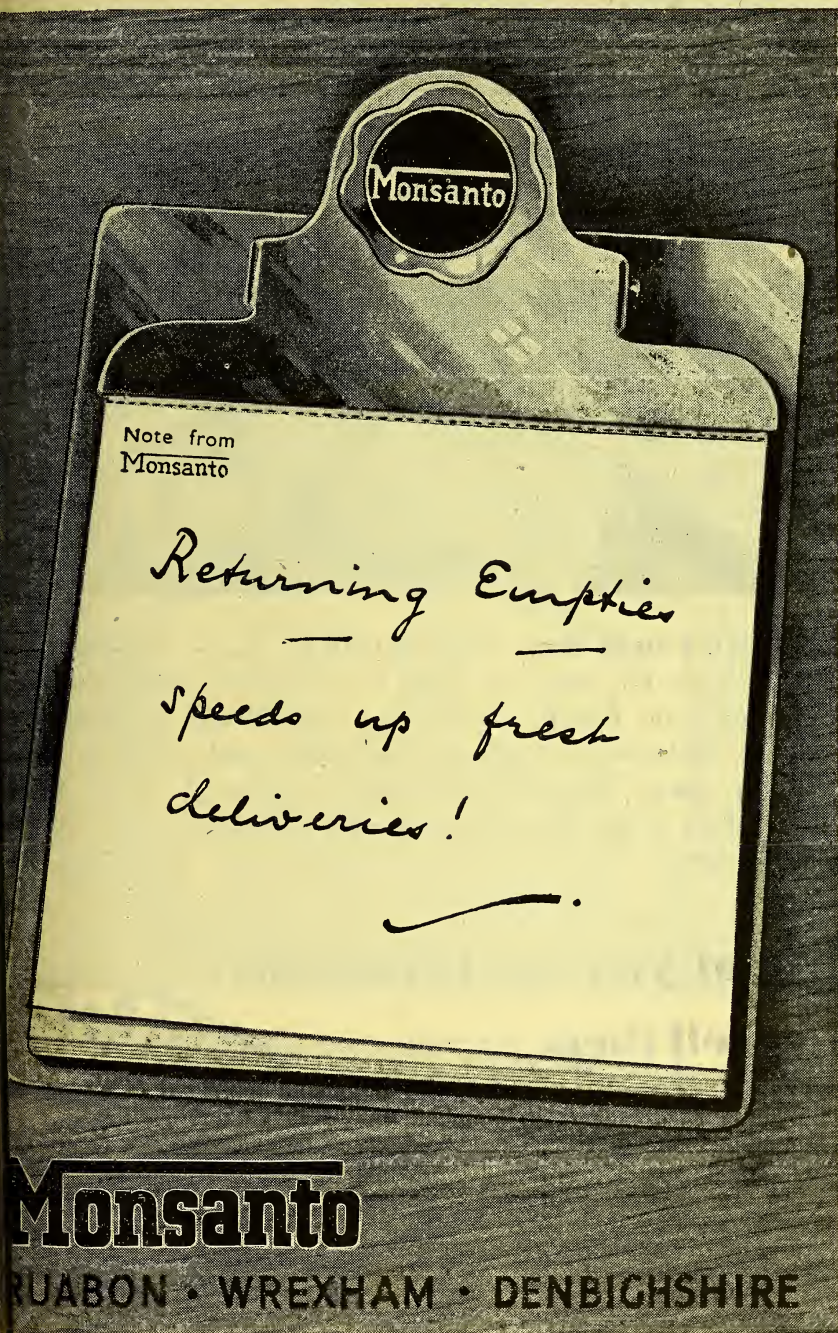 Monsanto
Note from
Monsanto
Returning Empties
speeds up fresh
deliveries!
Monsanto
RUABON · WREXHAM · DENBIGHSHIRE